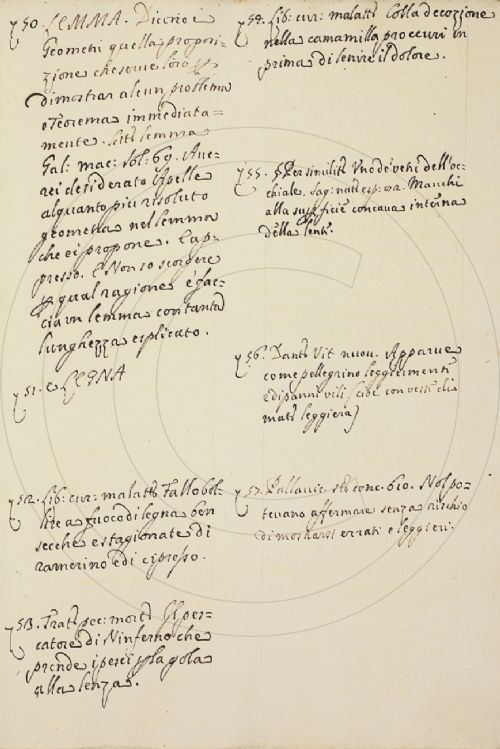 50. LEMMA. Dicono e
Geometri quella proposi=
zione che serve loro p
dimostrar alcun problema
o Teorema immediata=
mente.
Gal: mac: sol: 69. Ave=
rei desiderato Apelle
alquanto più risoluto
geometra nel lemma
che ei propone. E ap=
presso. E Non so scorgere
p qual ragione e' fac=
cia un lemma con tanta
lunghezza esplicato.
51. LEGNA
52. Lib: cur: malatt: Fallo bol=
lire a fuoco di legna ben
secche e stagionate di
ramerino e di cipresso.
53. Tratt: pec: mort: Il pes=
catore di Ninferno che
prende i pesci p la gola
alla lenza.
54. Lib: cur: malatt: Colla decozione
nella camamilla proccuri in
prima di lenire il dolore.
55. Per simil: Uno de' vetri dell'oc=
chiale. Sag: nat: esp: Manchi
alla supficie concava interna
della lente.
56. Dant: Vit: nuov. Apparve
come pellegrino leggiermente
e di panni vili (cioè con vesti di
mate leggiera)
57. Pallavic: conc: 610. Nol po=
tevano affermare senza rischio
di mostrarsi errati e leggieri.